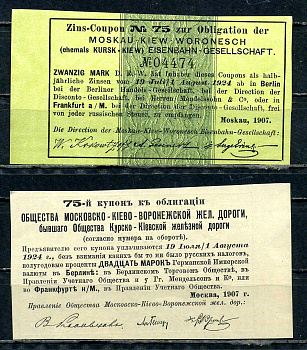 Zins-Coupon № 75 zur Obligation der
MOSKAU-KIEW-WORONESCH
(ehemals KURSK-KIEW) EISENBAHN-GESELLSCHAFT.
№ 04474
ZWANZIG MARK D. R.-W. hat Inhaber dieses Coupons als halb-
jährliche Zinsen vom 19 Juli/1 August 1924 ab in Berlin
bei der Berliner Handels-Gesellschaft, bei der Direction der
Disconto-Gesellschaft, bei Herren Mendelssohn & Co, oder in
Frankfurt a/M. bei der Direction der Disconto-Gesellschaft, frei
von jeder russischen Steuer, zu empfangen.
Moskau, 1907.
Die Direction der Moskau-Kiew-Woronesch Eisenbahn-Gesellschaft:
75-й купонъ къ облигаціи
ОБЩЕСТВА МОСКОВСКО-КІЕВО-ВОРОНЕЖСКОЙ ЖЕЛ. ДОРОГИ,
бывшаго Общества Курско-Кіевской желѣзной дороги
(согласно нумера на оборотѣ).
Предъявителю сего купона уплачивается 19 Іюля/1 Августа
1924 г., безъ взиманія какихъ бы то ни было русскихъ налоговъ,
полугодовые проценты ДВАДЦАТЬ МАРОКЪ Германской Имперской
валюты въ Берлинѣ: въ Берлинскомъ Торговомъ Обществѣ, въ
Правленіи Учетнаго Общества и у Гг. Мендельсонъ и Ко, или
во Франкфуртѣ н/М., въ Правленіи Учетнаго Общества.
Москва, 1907 г.
Правленіе Общества Московско-Кіево-Воронежской жел. дор.: